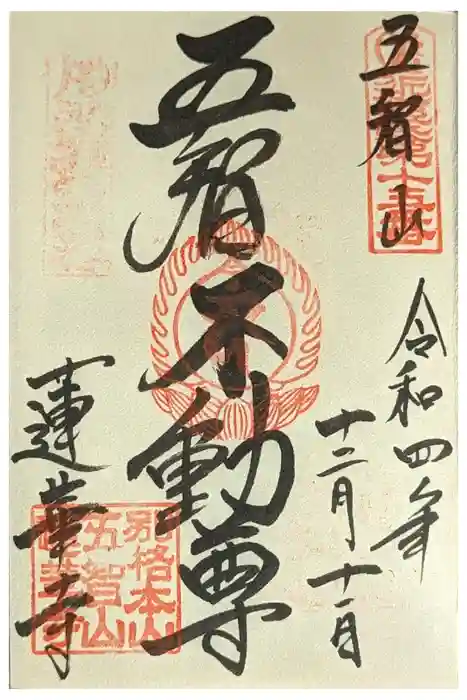 五智山
令和四年
十二月十一日
五智不動尊
蓮華寺
別格本山
五智山
蓮華寺